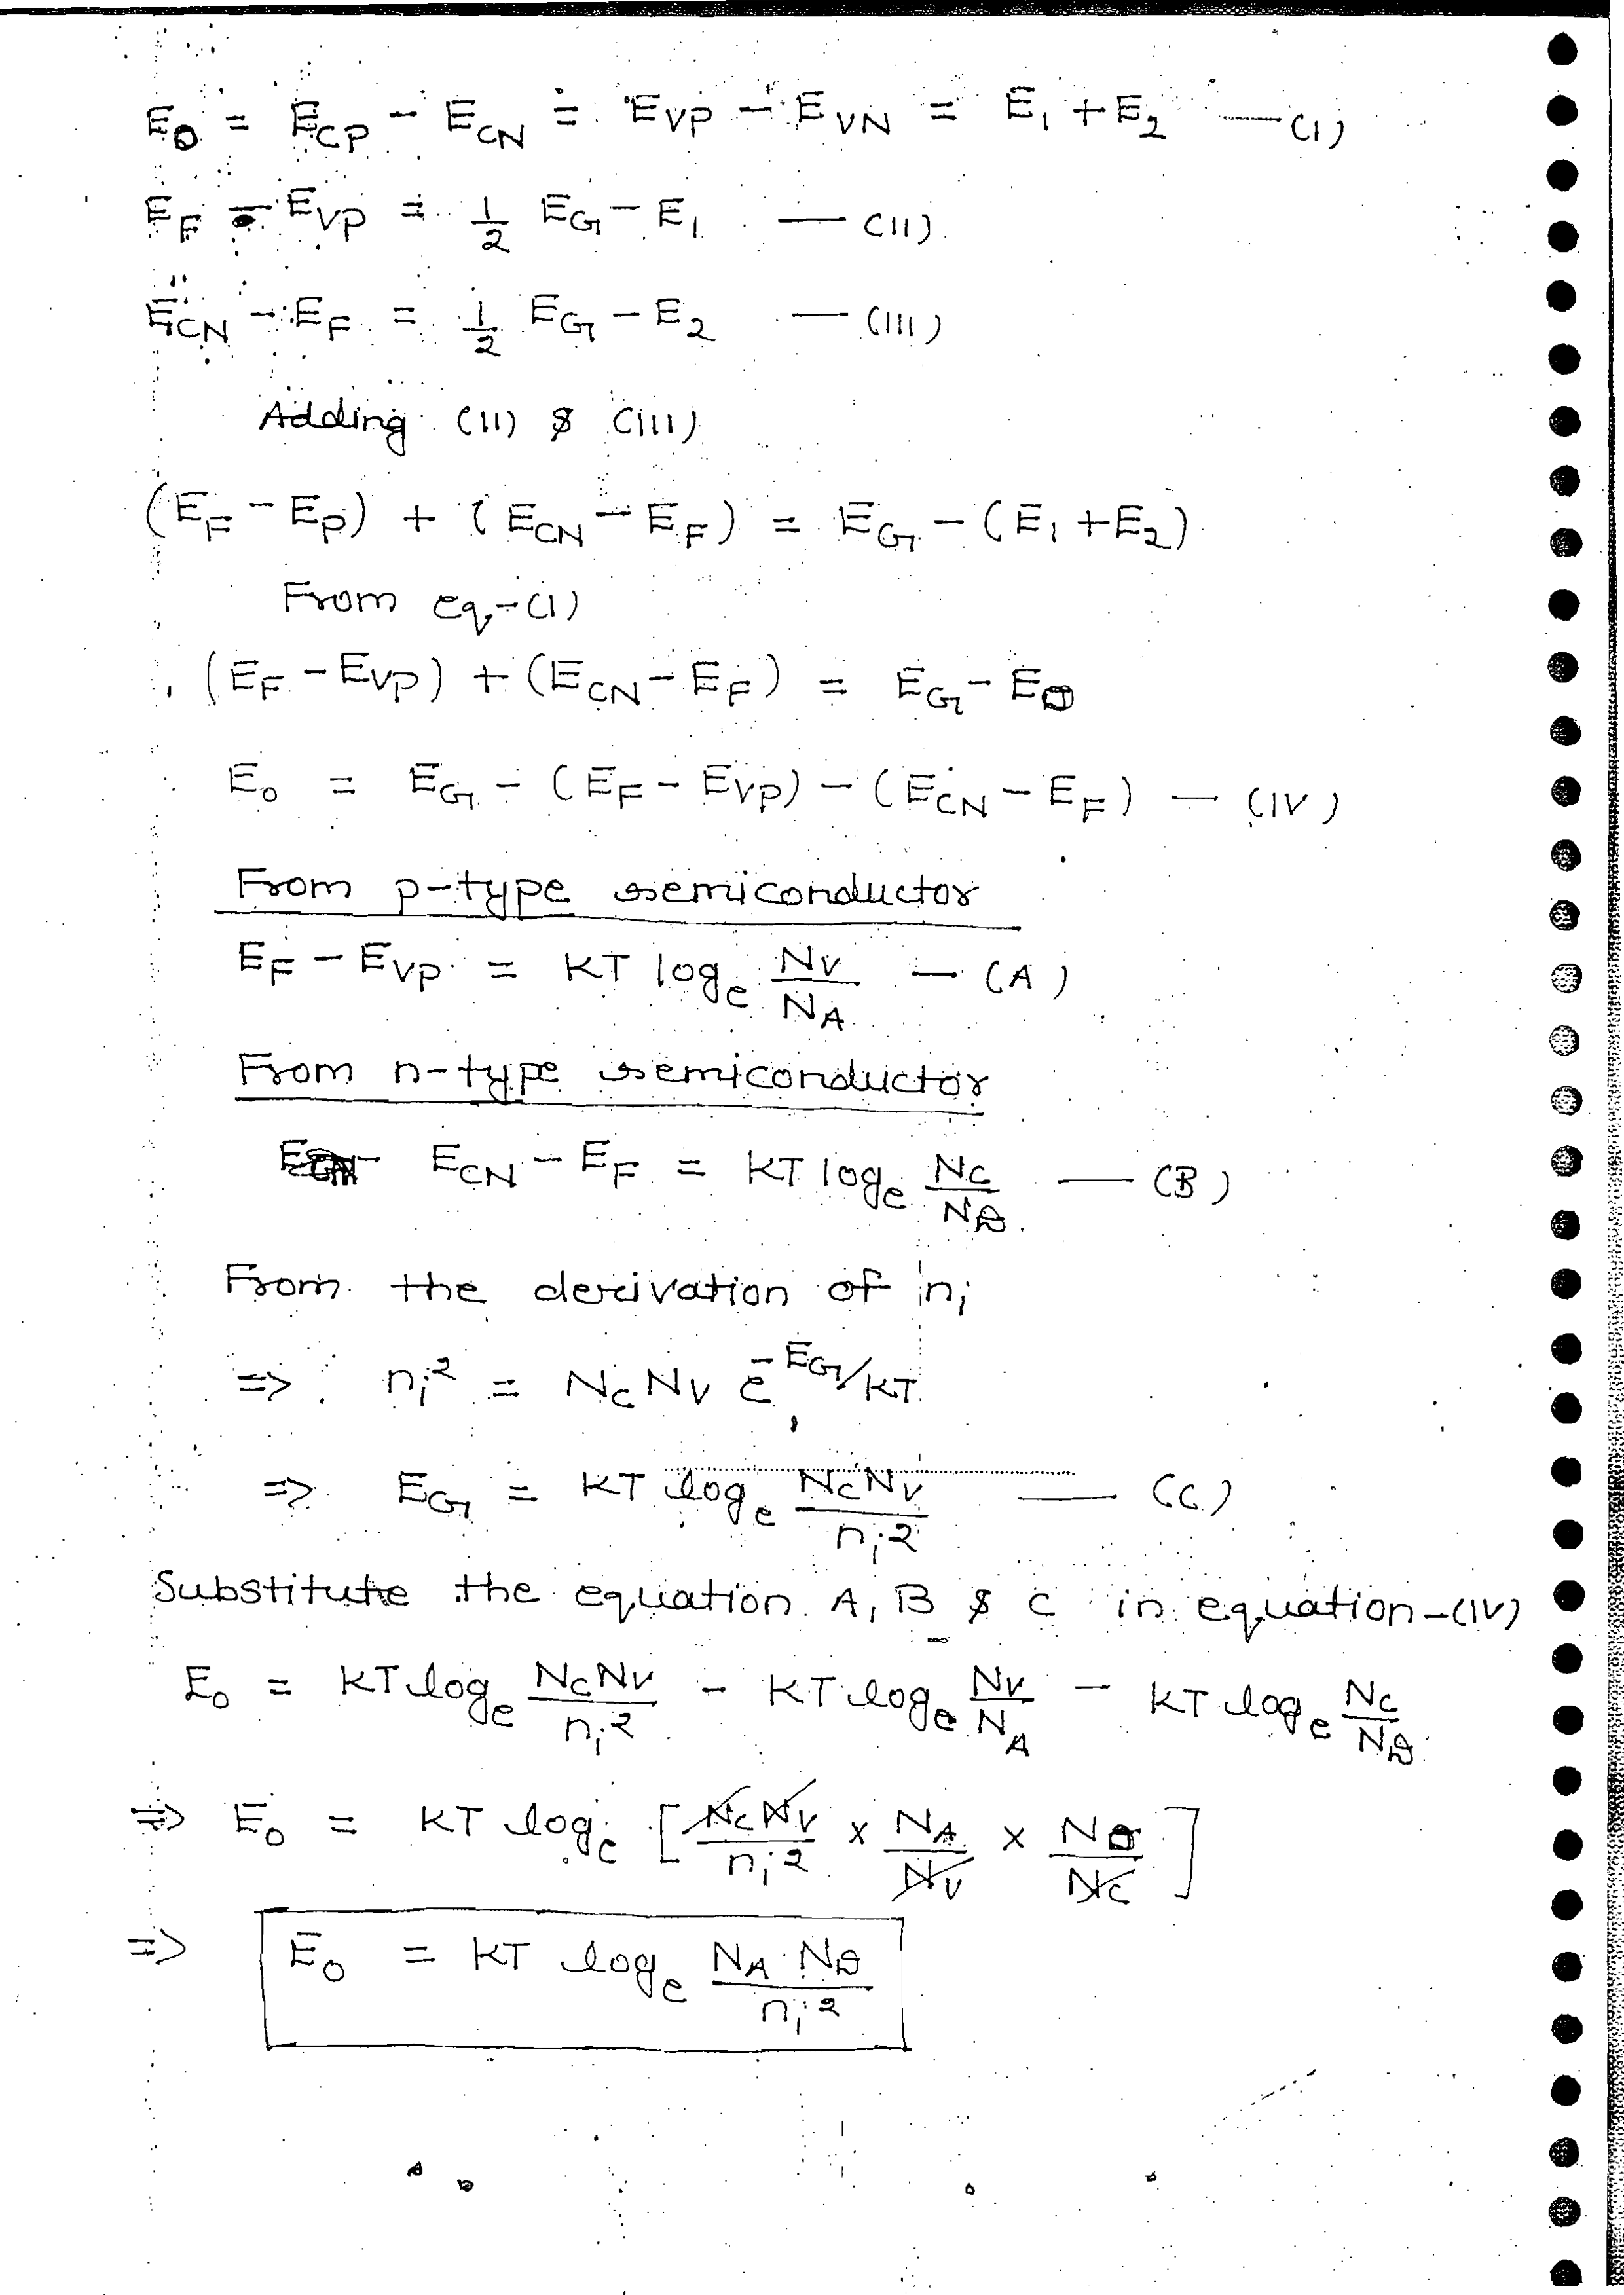 E₀ = E_CP - E_CN = E_VP - E_VN = E₁ + E₂ — (I)
E_F - E_VP = 1/2 E_G - E₁ — (II)
E_CN - E_F = 1/2 E_G - E₂ — (III)
Adding (II) & (III)
(E_F - E_P) + (E_CN - E_F) = E_G - (E₁ + E₂)
From eq-(I)
(E_F - E_VP) + (E_CN - E_F) = E_G - E₀
E₀ = E_G - (E_F - E_VP) - (E_CN - E_F) — (IV)
From p-type semiconductor
E_F - E_VP = KT logₑ N_V/N_A — (A)
From n-type semiconductor
E_CN - E_F = KT logₑ N_C/N_D — (B)
From the derivation of nᵢ
=> nᵢ² = N_C N_V e^-E_G/KT
=> E_G = KT logₑ N_C N_V/nᵢ² — (C)
Substitute the equation A, B & C in equation-(IV)
E₀ = KT logₑ N_C N_V/nᵢ² - KT logₑ N_V/N_A - KT logₑ N_C/N_D
=> E₀ = KT logₑ [N_C N_V/nᵢ² × N_A/N_V × N_D/N_C]
=> E₀ = KT logₑ N_A·N_D/nᵢ²